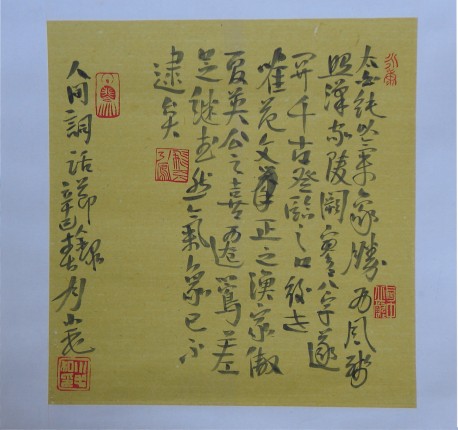 太白純以氣象勝西風殘
照漢家陵闕寥寥八字遂
關千古登臨之口後世
唯范文正之漁家傲
夏英公之喜遷鶯差
足繼武然氣象已不
逮矣
人間詞話節錄辛巳